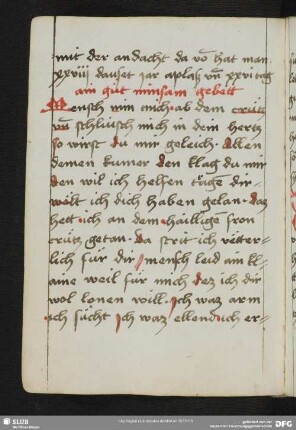 mit der andacht da vō hat man
xxviij dauset jar aplaß vñ xxvi tag
ain gůt minsam gebett
Mensch nim mich ab dem crütz
vñ schliüsch mich in dein hertz
so wirst du mir geleich Allen
deinen kumer den klag du mir
den wil ich helfen tragē dir
wölt ich dich haben gelan daz
hett ich an dem hailige fron
crütz getan Da strit ich ritter-
lich für dir mensch leid ain kl-
aine weil für mich dez ich dir
wol lonen will Ich waz arm
ich sücht Ich waz ellend ich er-
SLUB
DFG